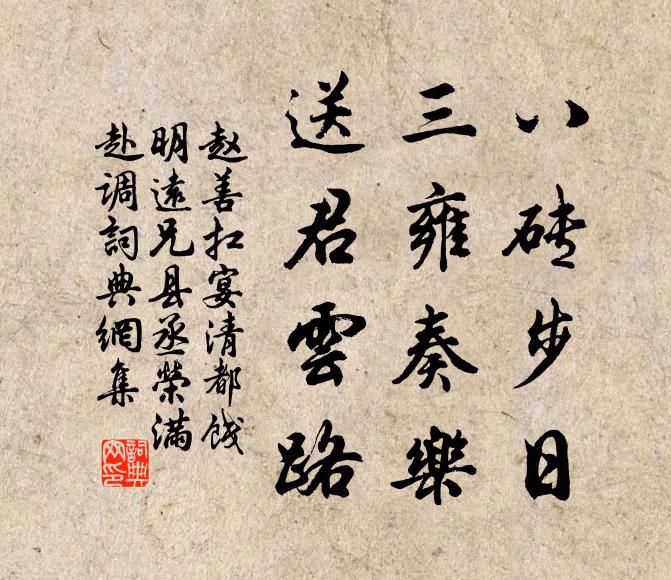 八砖步日
三雍奏樂
送君雲路
赵善扛宴清都饯
明遠兄县丞榮满
赴调詞典網集
詞典網印